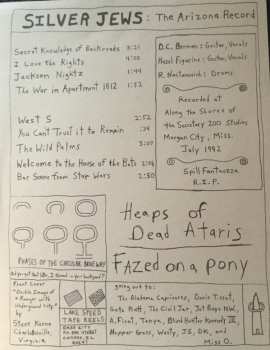 SILVER JEWS: The Arizona Record
Secret Knowledge of Backroads 3:21
I Love the Rights 4:00
Jackson Nightz 1:44
The War in Apartment 1812 1:52
West S 2:52
You Can't Trust it to Remain :34
The Wild Palms 3:07
Welcome to the House of the Bats 2:06
Bar Scene from Star Wars 2:50
D.C. Berman: Guitar, Vocals
Hazel Figurine: Guitar, Vocals
R. Nastanovich: Drums
Recorded at
Along the Shores of
the Sanitary 200 Studios
Morgan City, Miss.
July 1992
Spill Fantauzza
R.I.P.
PHASES OF THE CIRCULAR BROADWAY
Heaps of
Dead Ataris
FAZED on a pony
Front Cover
"Double Image of
a Ranger with
Underground Kelp"
by
Steve Keene
Charlottesville,
Virginia
LAKE SPEED
TAPE REELS
going out to:
The Alabama Capricorns, Davis Tissot,
Gate Pratt, The Civil Jar, Jet Boys NSW,
Hopper Grass, Westy, JS, DK, and
Miss O.